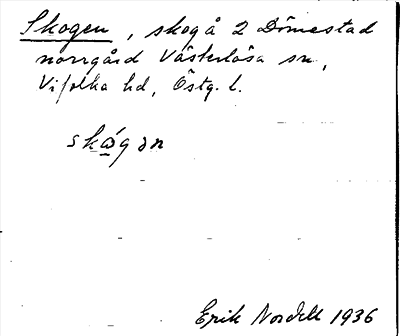 Skogen, skog å 2 Dömestad
norrgård Västerlösa sn,
Vifolka hd, Östg. l.
skǻgən
Erik Nordell 1936